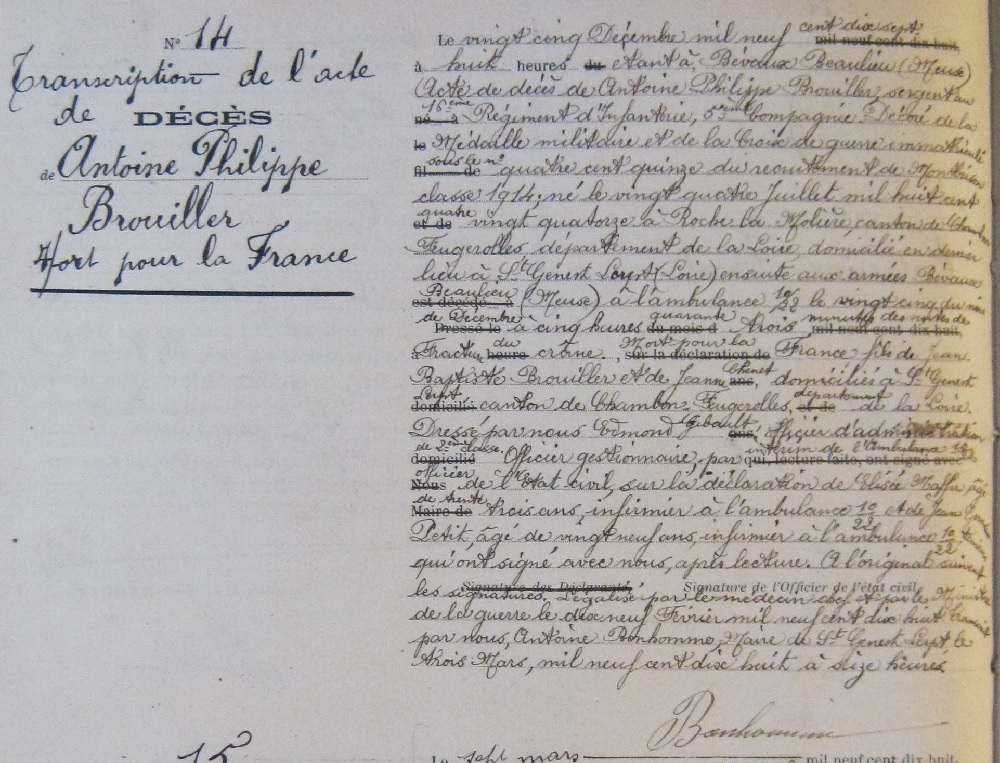 N° 14
Transcription de l'acte
de DÉCÈS
de Antoine Philippe
Brouiller
Mort pour la France
Le vingt cinq Décembre mil neuf cent dix sept mil neuf cent dix huit,
à huit heures du etant à Bévaux Beaulieu (Meuse)
(Acte de décès de Antoine Philippe Brouiller, sergent au
16ème né à Régiment d'Infanterie, 53ème Compagnie Décoré de la
le Médaille militaire et de la Croix de guerre immatriculé
sous le n° fil de quatre cent quinze du recrutement de Montbrison
classe 1914; né le vingt quatre Juillet mil huit cent
quatre et de vingt quatorze à Roche la Molière canton de Chambon
Feugerolles, département de la Loire, domicilié en dernier
lieu à St Genest Lerpt (Loire) ensuite aux armées Bévaux
Beaulieu est décédé à (Meuse) à l'ambulance 10/22 le vingt cinq du mois
de Décembre Dressé le à cinq heures quarante du mois d trois minutes mil neuf cent dix huit,
à Fracture du heure crâne., Mort pour la sur la déclaration de France fils de Jean
Baptiste Brouiller et de Jeanne Chenet ans, domiciliés à St Genest
Lerpt domicilié canton de Chambon-Feugerolles, département et de de la Loire.
Dressé par nous Edmond Gibault ans, officier d'administration
de 2ème classe. domicilié Officier gestionnaire, par intérim de l'Ambulance qui, lecture faite, ont signé avec
officier Nous de l'Etat civil, sur la déclaration de Elisée Maffre âgé
de trente Maire de trois ans, infirmier à l'ambulance 10/22 et de Jean
Petit, âgé de vingt neuf ans, infirmier à l'ambulance 10/22
qui ont signé avec nous, après lecture. A l'original suivent
Signature des Déclarants Signature de l'Officier de l'état civil,
les signatures. Légalisé par le médecin chef et par le
de la guerre le dix neuf Février mil neuf cent dix huit. Transcrit
par nous, Antoine Bonhomme, Maire de St Genest Lerpt, le
trois Mars, mil neuf cent dix huit à seize heures.
Bonhomme
15
Le sept mars mil neuf cent dix huit,